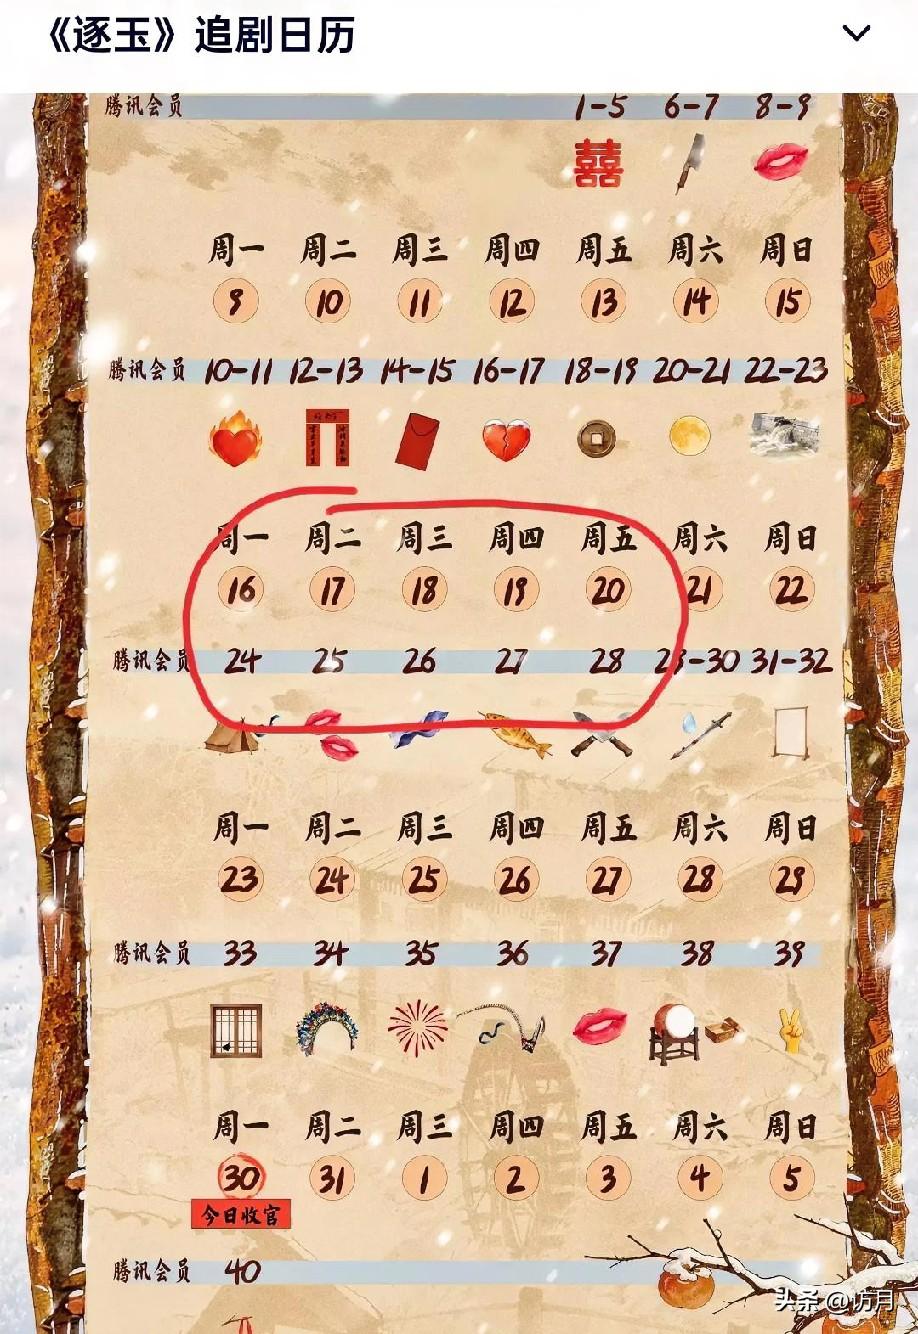 《逐玉》追剧日历
腾讯会员 1-5 6-7 8-9
囍
周一 周二 周三 周四 周五 周六 周日
9 10 11 12 13 14 15
腾讯会员 10-11 12-13 14-15 16-17 18-19 20-21 22-23
周一 周二 周三 周四 周五 周六 周日
16 17 18 19 20 21 22
腾讯会员 24 25 26 27 28 29-30 31-32
周一 周二 周三 周四 周五 周六 周日
23 24 25 26 27 28 29
腾讯会员 33 34 35 36 37 38 39
周一 周二 周三 周四 周五 周六 周日
30 31 1 2 3 4 5
今日收官
腾讯会员 40
头条 @访月